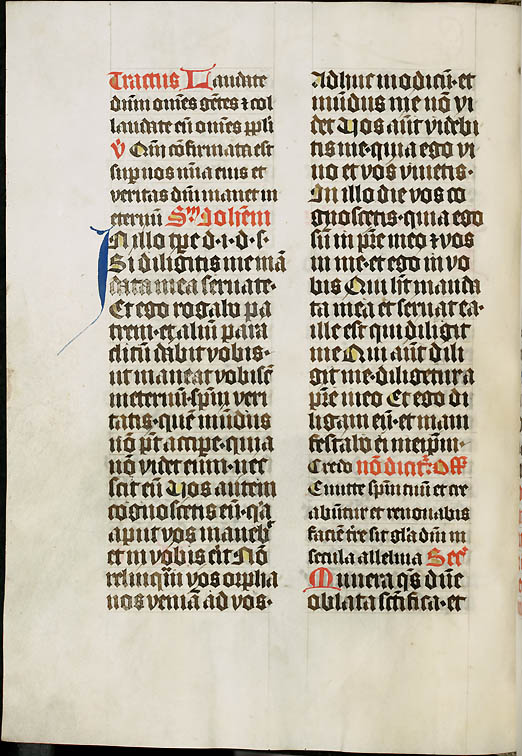 Tractus Laudate
dn̄m om̄es gẽtes ⁊ col
laudate eū om̄es pp̄li
V̄ Qm̄ cōfirmata est
sup nos mīa eius et
veritas dn̄i manet in
eternū Sm̄ Johēm
In illo tpe d. i. d. s.
Si diligitis me mā
data mea seruate.
Et ego rogabo pa
trem. et aliū para
clitū dabit vobis.
ut maneat vobisc̄
in eternū. spm̄ veri
tatis. quē mūdus
nō pt̄ accipe. quia
nō videt eum. nec
scit eū Vos autem
cognoscetis eū. q̄a
aput vos maneb̄
et in vobis erit Nō
relinquā vos orpha
nos veniā ad vos.
Adhuc modicū. et
mūdus me nō vi
det Vos aūt videbi
tis me. quia ego vi
uo et vos viuetis.
In illo die vos co
gnoscetis. quia ego
sū in pr̄e meo ⁊ vos
in me. et ego in vo
bis Qui h̄t manda
ta mea et seruat ea.
ille est qui diligit
me Qui aūt dili
git me. diligetur a
pr̄e meo Et ego di
ligam eū. et mani
festabo ei meip̄m.
Credo nō dicit᷑. Off
Emitte spm̄ tuū et cre
abūtur et renouabis
faciē tr̄e sit gl̄a dn̄i in
secula alleluia Secr̄
Munera q̄s dn̄e
oblata sc̄tifica. et